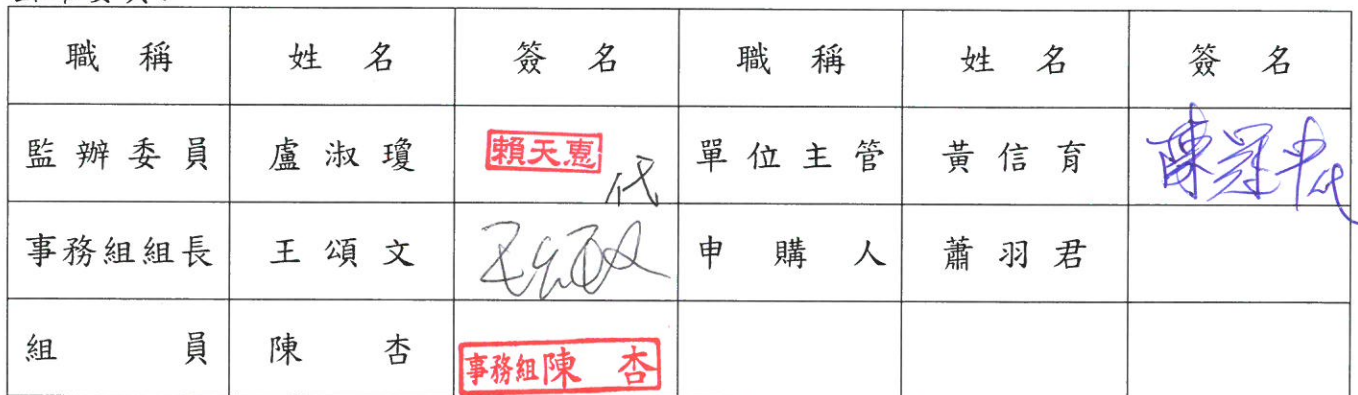 職稱 姓名 簽名 職稱 姓名 簽名
監辦委員 盧淑瓊 賴天惠 代 單位主管 黃信育 陳冠中代
事務組組長 王頌文 王頌文 申購人 蕭羽君
組員 陳杏 事務組陳杏